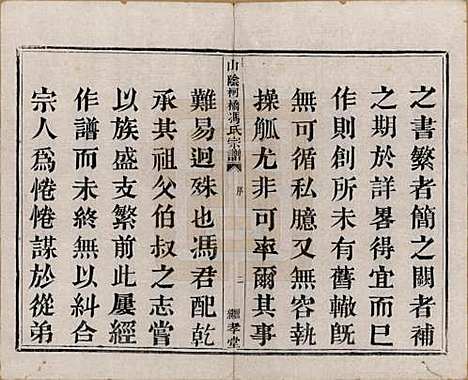 之書繁者簡之闕者補
之期於詳畧得宜而已
作則創所未有舊轍旣
無可循私臆又無容執
操觚尤非可率爾其事
山陰柯橋馮氏宗譜
序
二
繼孝堂
難易迥殊也馮君配乾
承其祖父伯叔之志嘗
以族盛支繁前此屢經
作譜而未終無以糾合
宗人爲惓惓謀於從弟